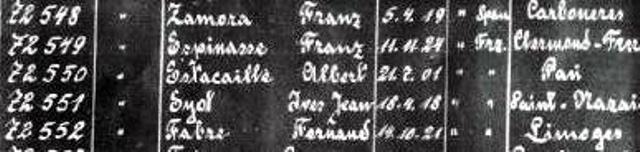 72 548 " Zamora Franz 5.4.19 " Span Carboneres
72 549 " Espinasse Franz 11.11.24 " Frz. Clermond-Ferr
72 550 " Estacaille Albert 21.7.01 " " Pau
72 551 " Eyol Yves Jean 18.4.18 " " Saint-Nazai
72 552 " Fabre Fernand 14.10.21 " " Limoges